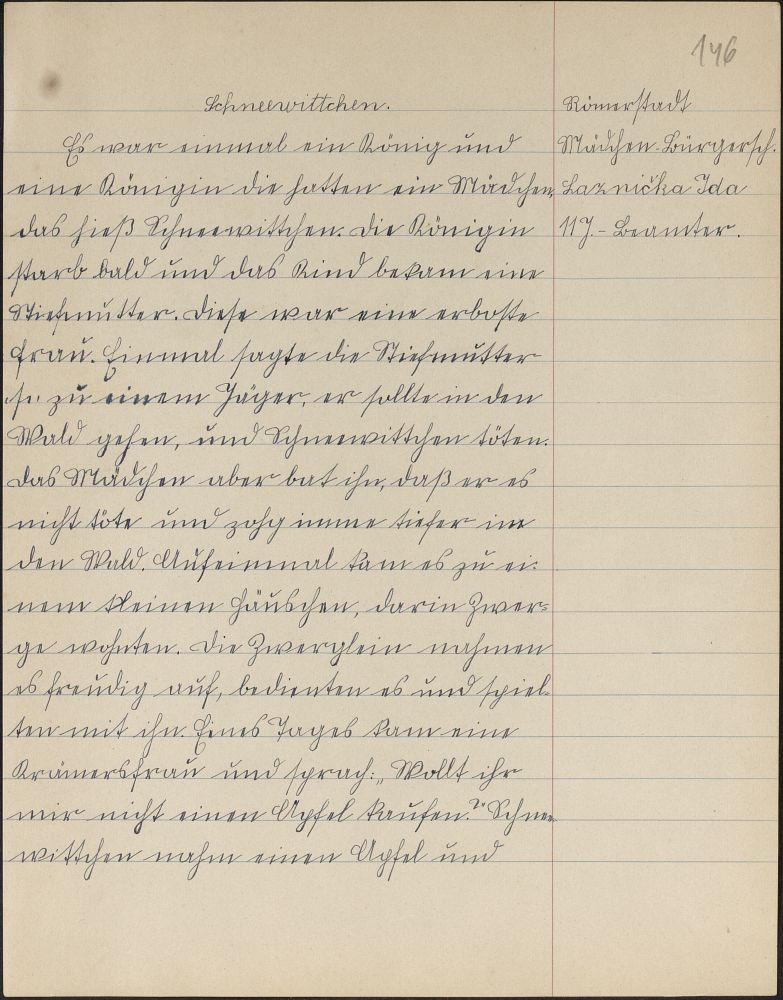 146
Schneewittchen.
Es war einmal ein König und
eine Königin die hatten ein Mädchen,
das hieß Schneewittchen. Die Königin
starb bald und das Kind bekam eine
Stiefmutter. Diese war eine erboste
Frau. Einmal sagte die Stiefmutter
zu einem Jäger, er sollte in den
Wald gehen, und Schneewittchen töten.
Das Mädchen aber bat ihn, daß er es
nicht töte und zohg imme tiefer in
den Wald. Aufeinmal kam es zu ei-
nem kleinen Häuschen, darin Zwer-
ge wohnten. Die Zwerglein nahmen
es freudig auf, bedienten es und spiel-
ten mit ihn. Eines Tages kam eine
Krämersfrau und sprach: „Wollt ihr
mir nicht einen Apfel kaufen?" Schnee-
wittchen nahm einen Apfel und
Römerstadt
Mädchen-Bürgersch.
Laznička Ida
11 J. - Beamter.